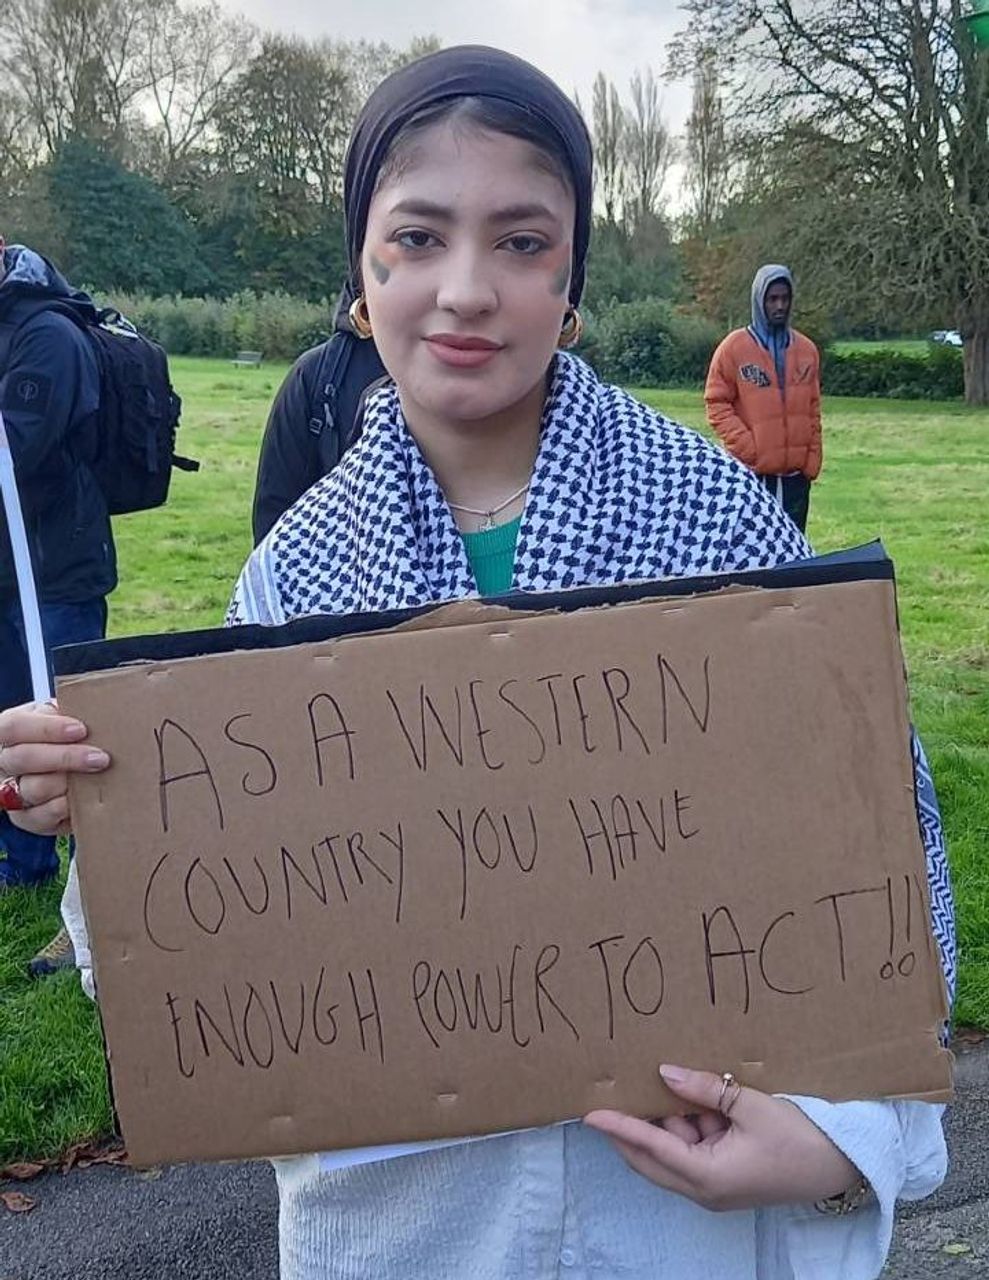 AS A WESTERN
COUNTRY YOU HAVE
ENOUGH POWER TO ACT!!